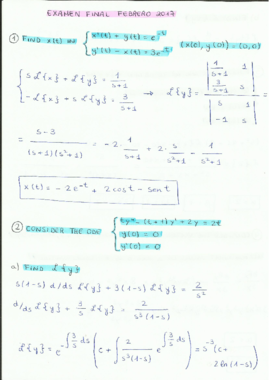 EXAMEN FINAL FEBRERO 2017
① FIND x(t) { x'(t) + y(t) = e^-t
y'(t) - x(t) = 3e^-t (x(0), y(0)) = (0,0)
{ s L{x} + L{y} = 1/(s+1)
-L{x} + s L{y} = 3/(s+1) → L{y} = | 1/(s+1) 1 ; 3/(s+1) s | / | s 1 ; -1 s | =
= (s-3)/((s+1)(s²+1)) = -2 · 1/(s+1) + 2 · s/(s²+1) - 1/(s²+1)
x(t) = -2e^-t + 2cost - sent
② CONSIDER THE ODE { ty'' - (t+1)y' + 2y = 2t
y(0) = 0
y'(0) = 0
a) FIND L{y}
s(1-s) d/ds L{y} + 3(1-s) L{y} = 2/s²
d/ds L{y} + 3/s L{y} = 2/(s³(1-s))
L{y} = e^(-∫3/s ds) (c + ∫ 2/(s³(1-s)) e^(∫3/s ds)) = s^-3 (c +
2ln(1-s))